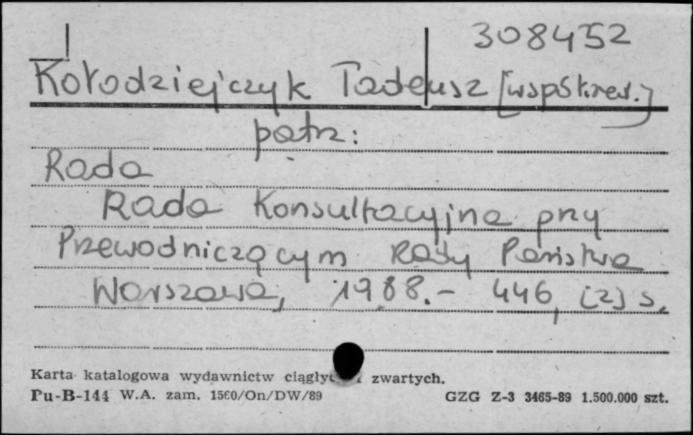 308452
Kołodziejczyk Tadeusz [współred.]
patrz:
Rada
Rada Konsultacyjna przy
Przewodniczącym Rady Państwa
Warszawa, 1988.- 446, [2] s.
Karta katalogowa wydawnictw zwartych.
Pu-B-144 W.A. zam. 1560/On/DW/89 GZG Z-3 3465-89 1.500.000 szt.